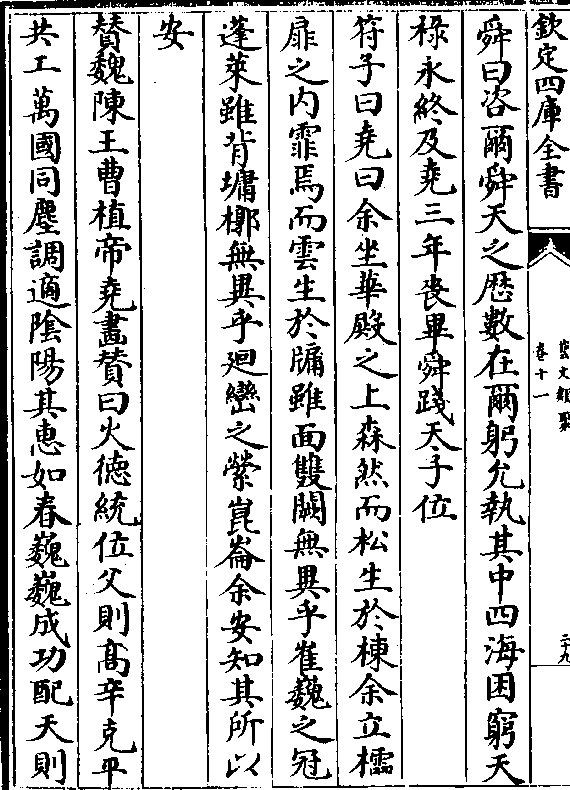 欽定四庫全書
藝文類聚
卷十一
二十九
舜曰咨爾舜天之歴數在爾躬允執其中四海困窮天
祿永終及堯三年喪畢舜踐天子位
符子曰堯曰余坐華殿之上森然而松生於棟余立櫺
扉之内霏焉而雲生於牖雖面雙闕無異乎崔巍之冠
蓬萊雖背墉郭無異乎廻巒之縈崑崙余安知其所以
安
賛魏陳王曹植帝堯畫賛曰火德統位父則髙辛克平
共工萬國同塵調適陰陽其惠如春巍巍成功配天則